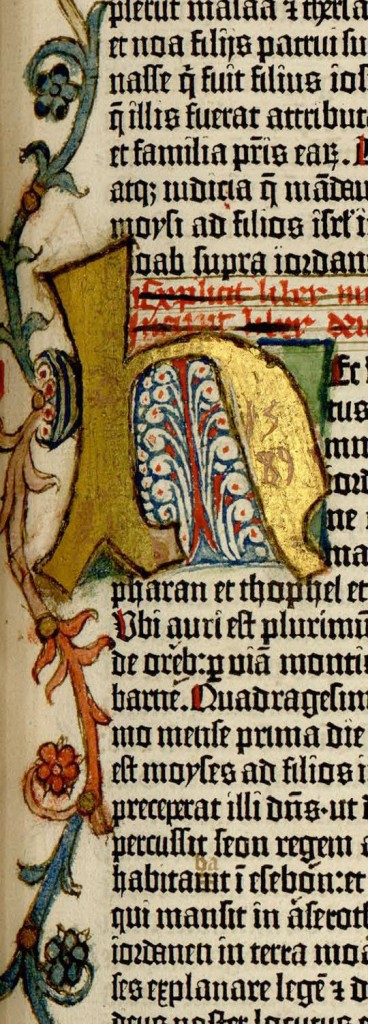 plerūt malaa ⁊ therla
et noa filijs patrui su
nasse q̄ fuit filius ios
q̄ illis fuerat attribut
et familia pr̄is eaꝝ.
atqꝫ iudicia q̄ mādau
moysi ad filios isrl̄ i
moab supra iordan
Explicit liber nu
incipit liber deu
Hec
tus
mn
iord
ne
ma
pharan et thophel et
Vbi auri est plurimū
de oreb: ꝑ viā montis
barne. Quadragesim
mo mense prima die
est moyses ad filios i
preceperat illi dn̄s· ut
percussit seon regem
habitauit ī esebon: et
qui mansit in aseroth
iordanen in terra moa
ses explanare legē ⁊ d
deus noster locutus
15
89
ba